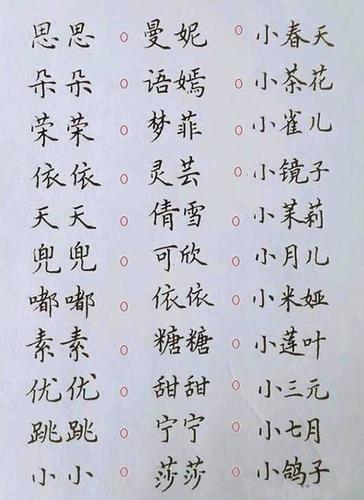 思思 ○ 曼妮 ○ 小春天
朵朵 ○ 语嫣 ○ 小茶花
荣荣 ○ 梦菲 ○ 小雀儿
依依 ○ 灵芸 ○ 小镜子
天天 ○ 倩雪 ○ 小茉莉
兜兜 ○ 可欣 ○ 小月儿
嘟嘟 ○ 依依 ○ 小米娅
素素 ○ 糖糖 ○ 小莲叶
优优 ○ 甜甜 ○ 小三元
跳跳 ○ 宁宁 ○ 小七月
小小 ○ 莎莎 ○ 小鸽子